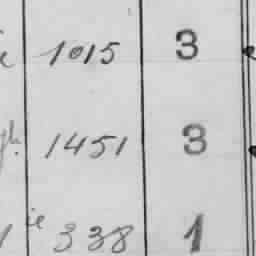 1015 3
1451 3
ie 338 1